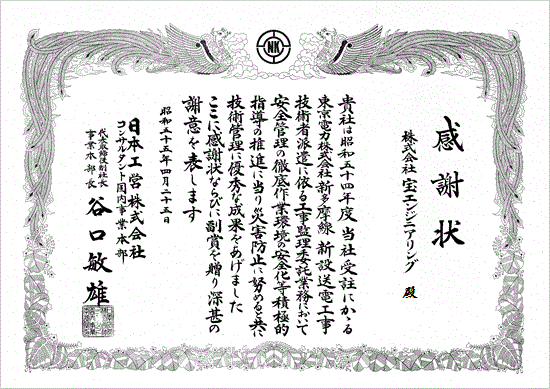 NK
感謝状
株式会社 宝エンジニアリング 殿
貴社は昭和五十四年度 当社受註にかゝる
東京電力株式会社 新多摩線 新設送電工事
技術者派遣に依る工事監理委託業務において
安全管理の徹底作業環境の安全化等積極的
指導の推進に当り災害防止に努めると共に
技術管理に優秀な成果をあげました
ここに感謝状ならびに副賞を贈り深甚の
謝意を表します
昭和五十五年四月二十五日
日本工営株式会社
コンサルタント国内事業本部
代表取締役副社長
事業本部長
谷口敏雄